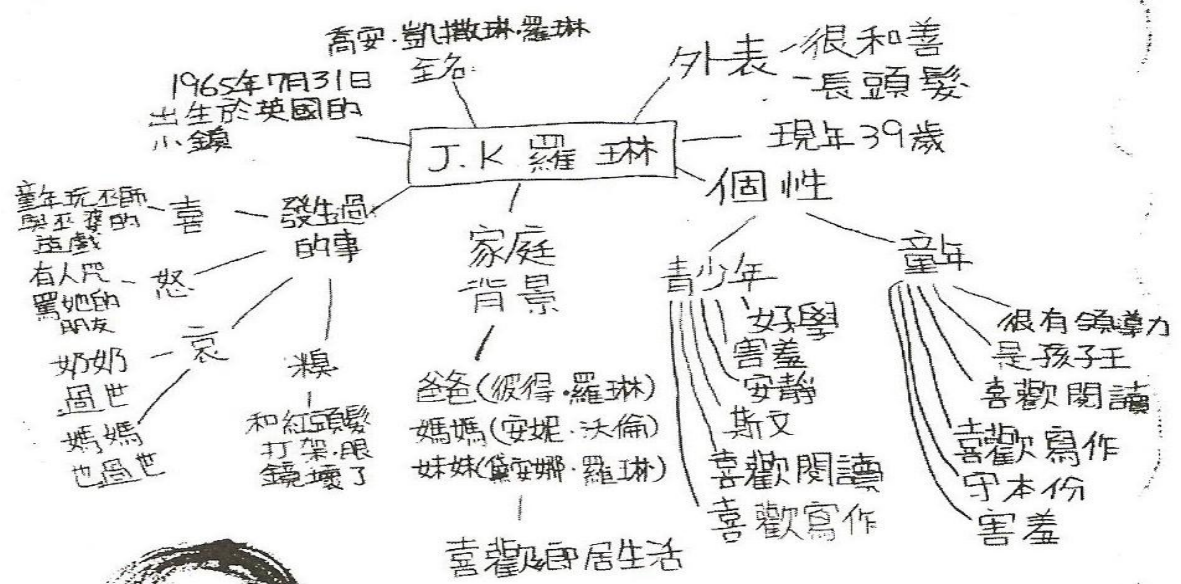 喬安·凱撒琳·羅琳
全名
1965年7月31日
出生於英國的
小鎮
外表
很和善
長頭髮
現年39歲
J.K 羅琳
個性
青少年
好學
害羞
安靜
斯文
喜歡閱讀
喜歡寫作
童年
很有領導力
是孩子王
喜歡閱讀
喜歡寫作
守本份
害羞
家庭
背景
爸爸(彼得·羅琳)
媽媽(安妮·沃倫)
妹妹(黛安娜·羅琳)
喜歡鄉居生活
發生過
的事
喜
童年玩巫師
與巫婆的
遊戲
怒
有人咒
罵她的
朋友
哀
奶奶
過世
媽媽
也過世
糗
和紅頭髮
打架·眼
鏡壞了